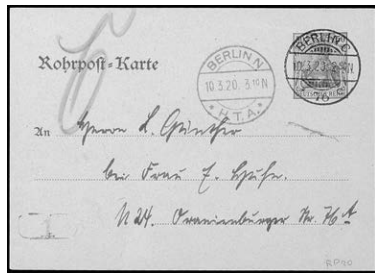 Rohrpost-Karte
BERLIN N.
10.3.20. 3 10 N
* H.T.A. *
BERLIN C
An Herrn L. Günther
bei Frau E.
N 24. Oranienburger Str. 76 A
RP20